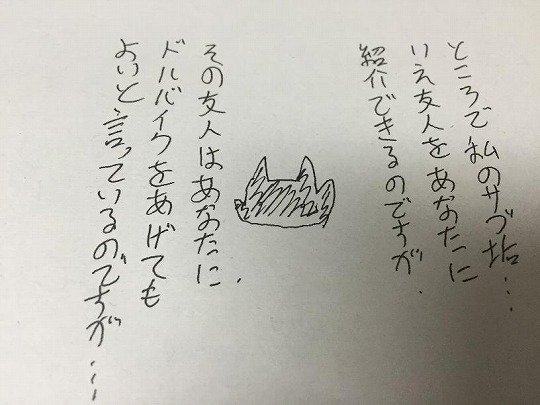 ところで私のサブ垢…
いえ友人をあなたに
紹介できるのですが.
その友人はあなたに.
ドルバイクをあげても
よいと言っているのですが…